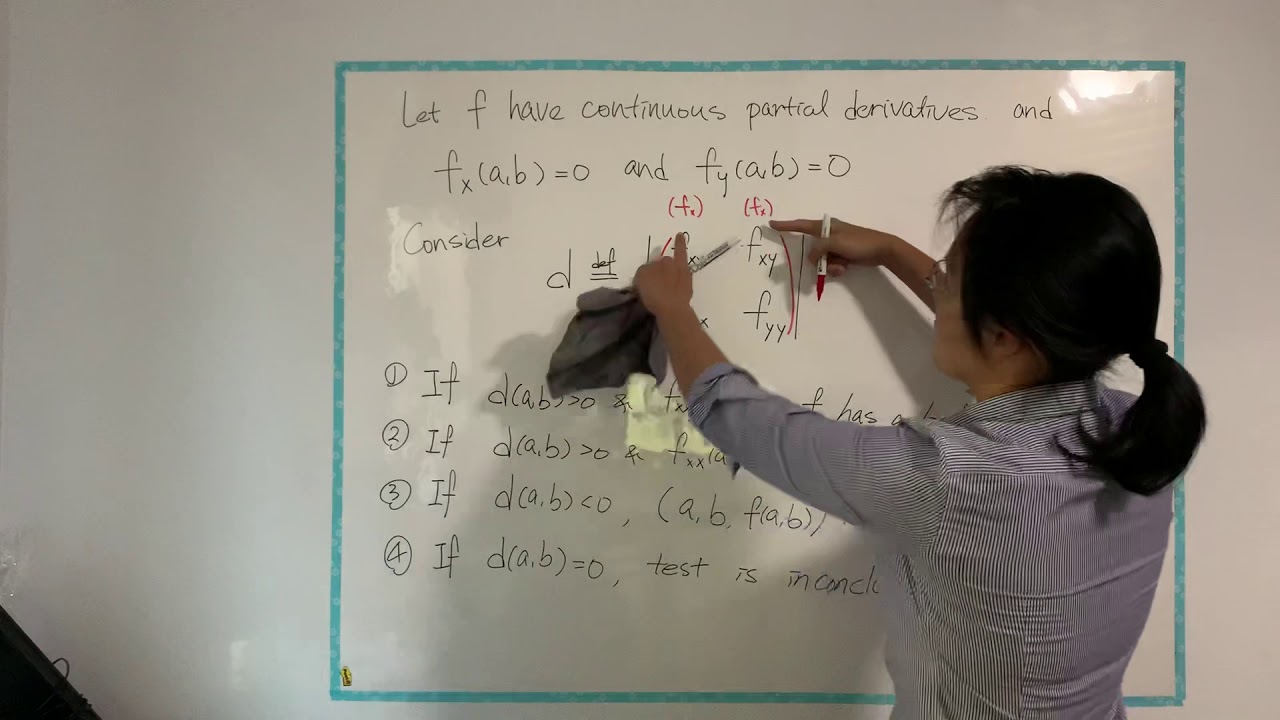 Let f have continuous partial derivatives and
fx(a,b)=0 and fy(a,b)=0
(fx) (fx)
Consider
d def= | fxy
fyy |
① If d(a,b)>0 & f has a
② If d(a,b)>0 & fxx(a
③ If d(a,b)<0, (a,b, f(a,b))
④ If d(a,b)=0, test is